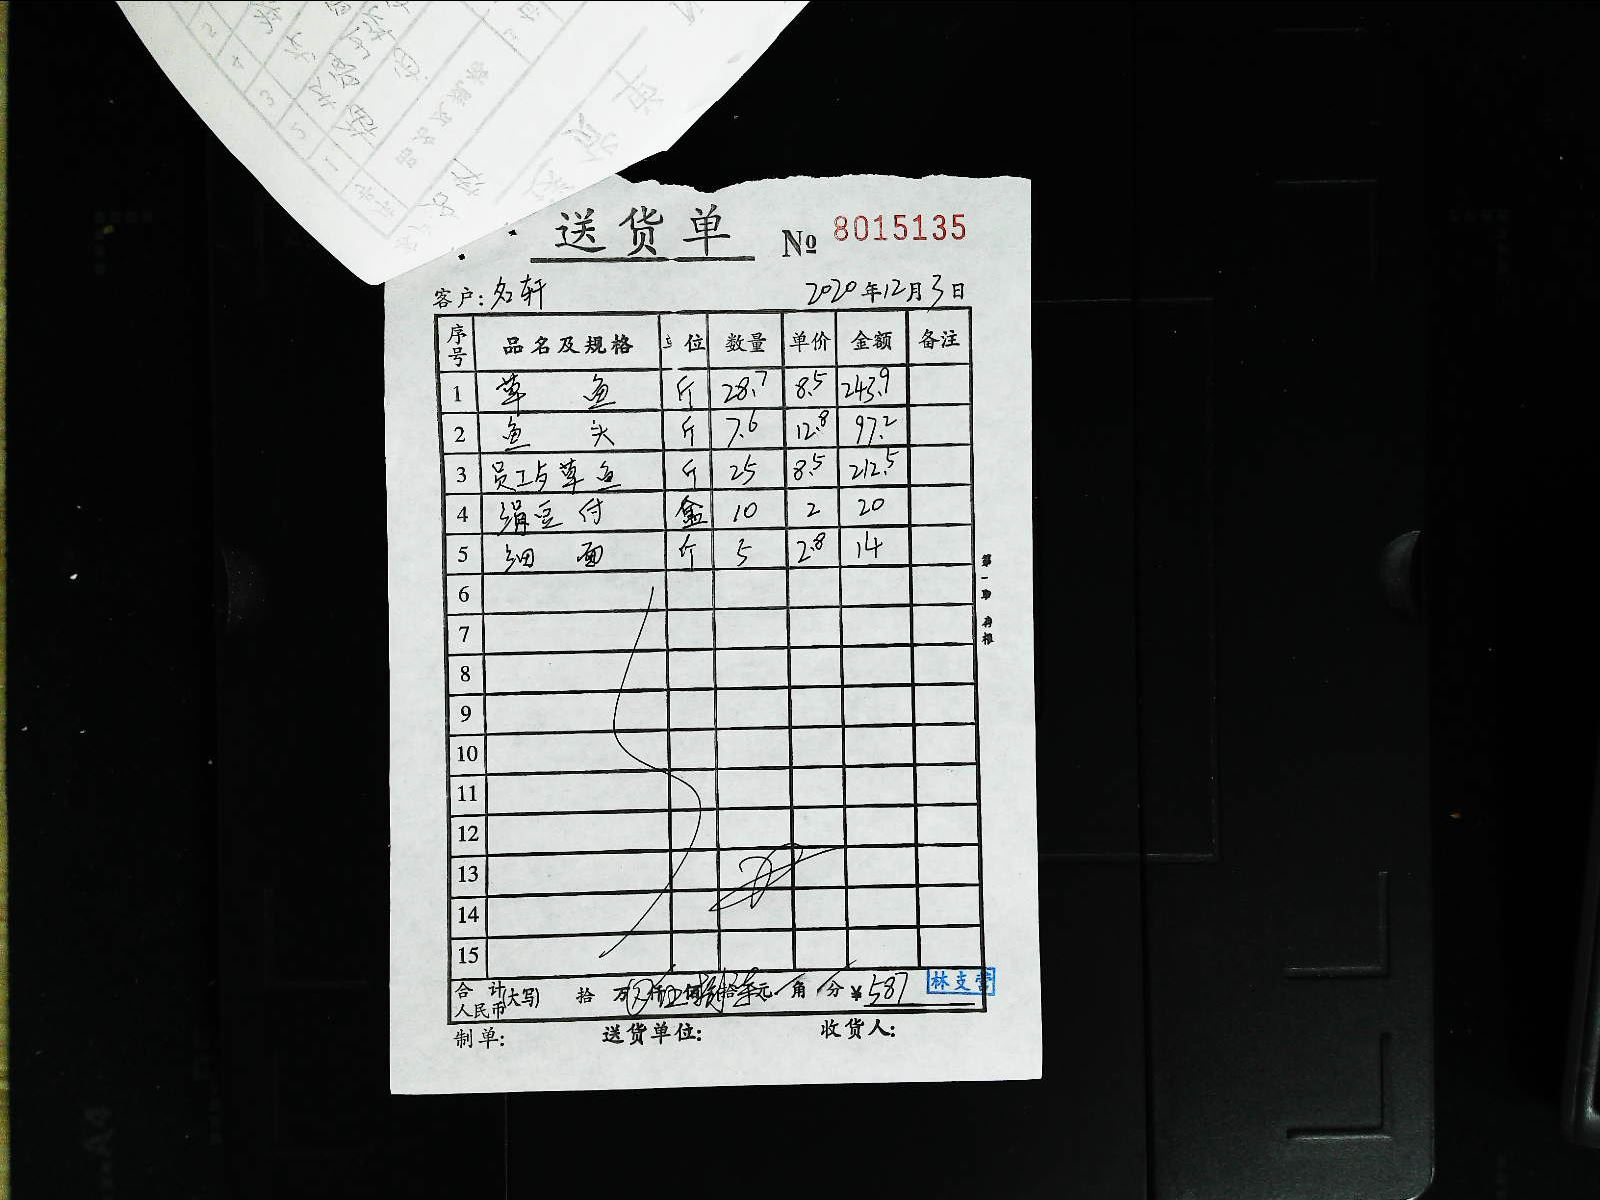 送货单 № 8015135
客户: 名轩 2020年12月3日
序号 品名及规格 位 数量 单价 金额 备注
1 草鱼 斤 28.7 8.5 243.9
2 鱼头 斤 7.6 12.8 97.2
3 员工与草鱼 斤 25 8.5 212.5
4 绢豆付 盒 10 2 20
5 细面 斤 5 2.8 14
6
7
8
9
10
11
12
13
14
15
合计人民币(大写) 拾 万 仟 伍 佰 捌 拾 柒 元 角 分 ¥587
林支营
制单: 送货单位: 收货人:
第一联 存根